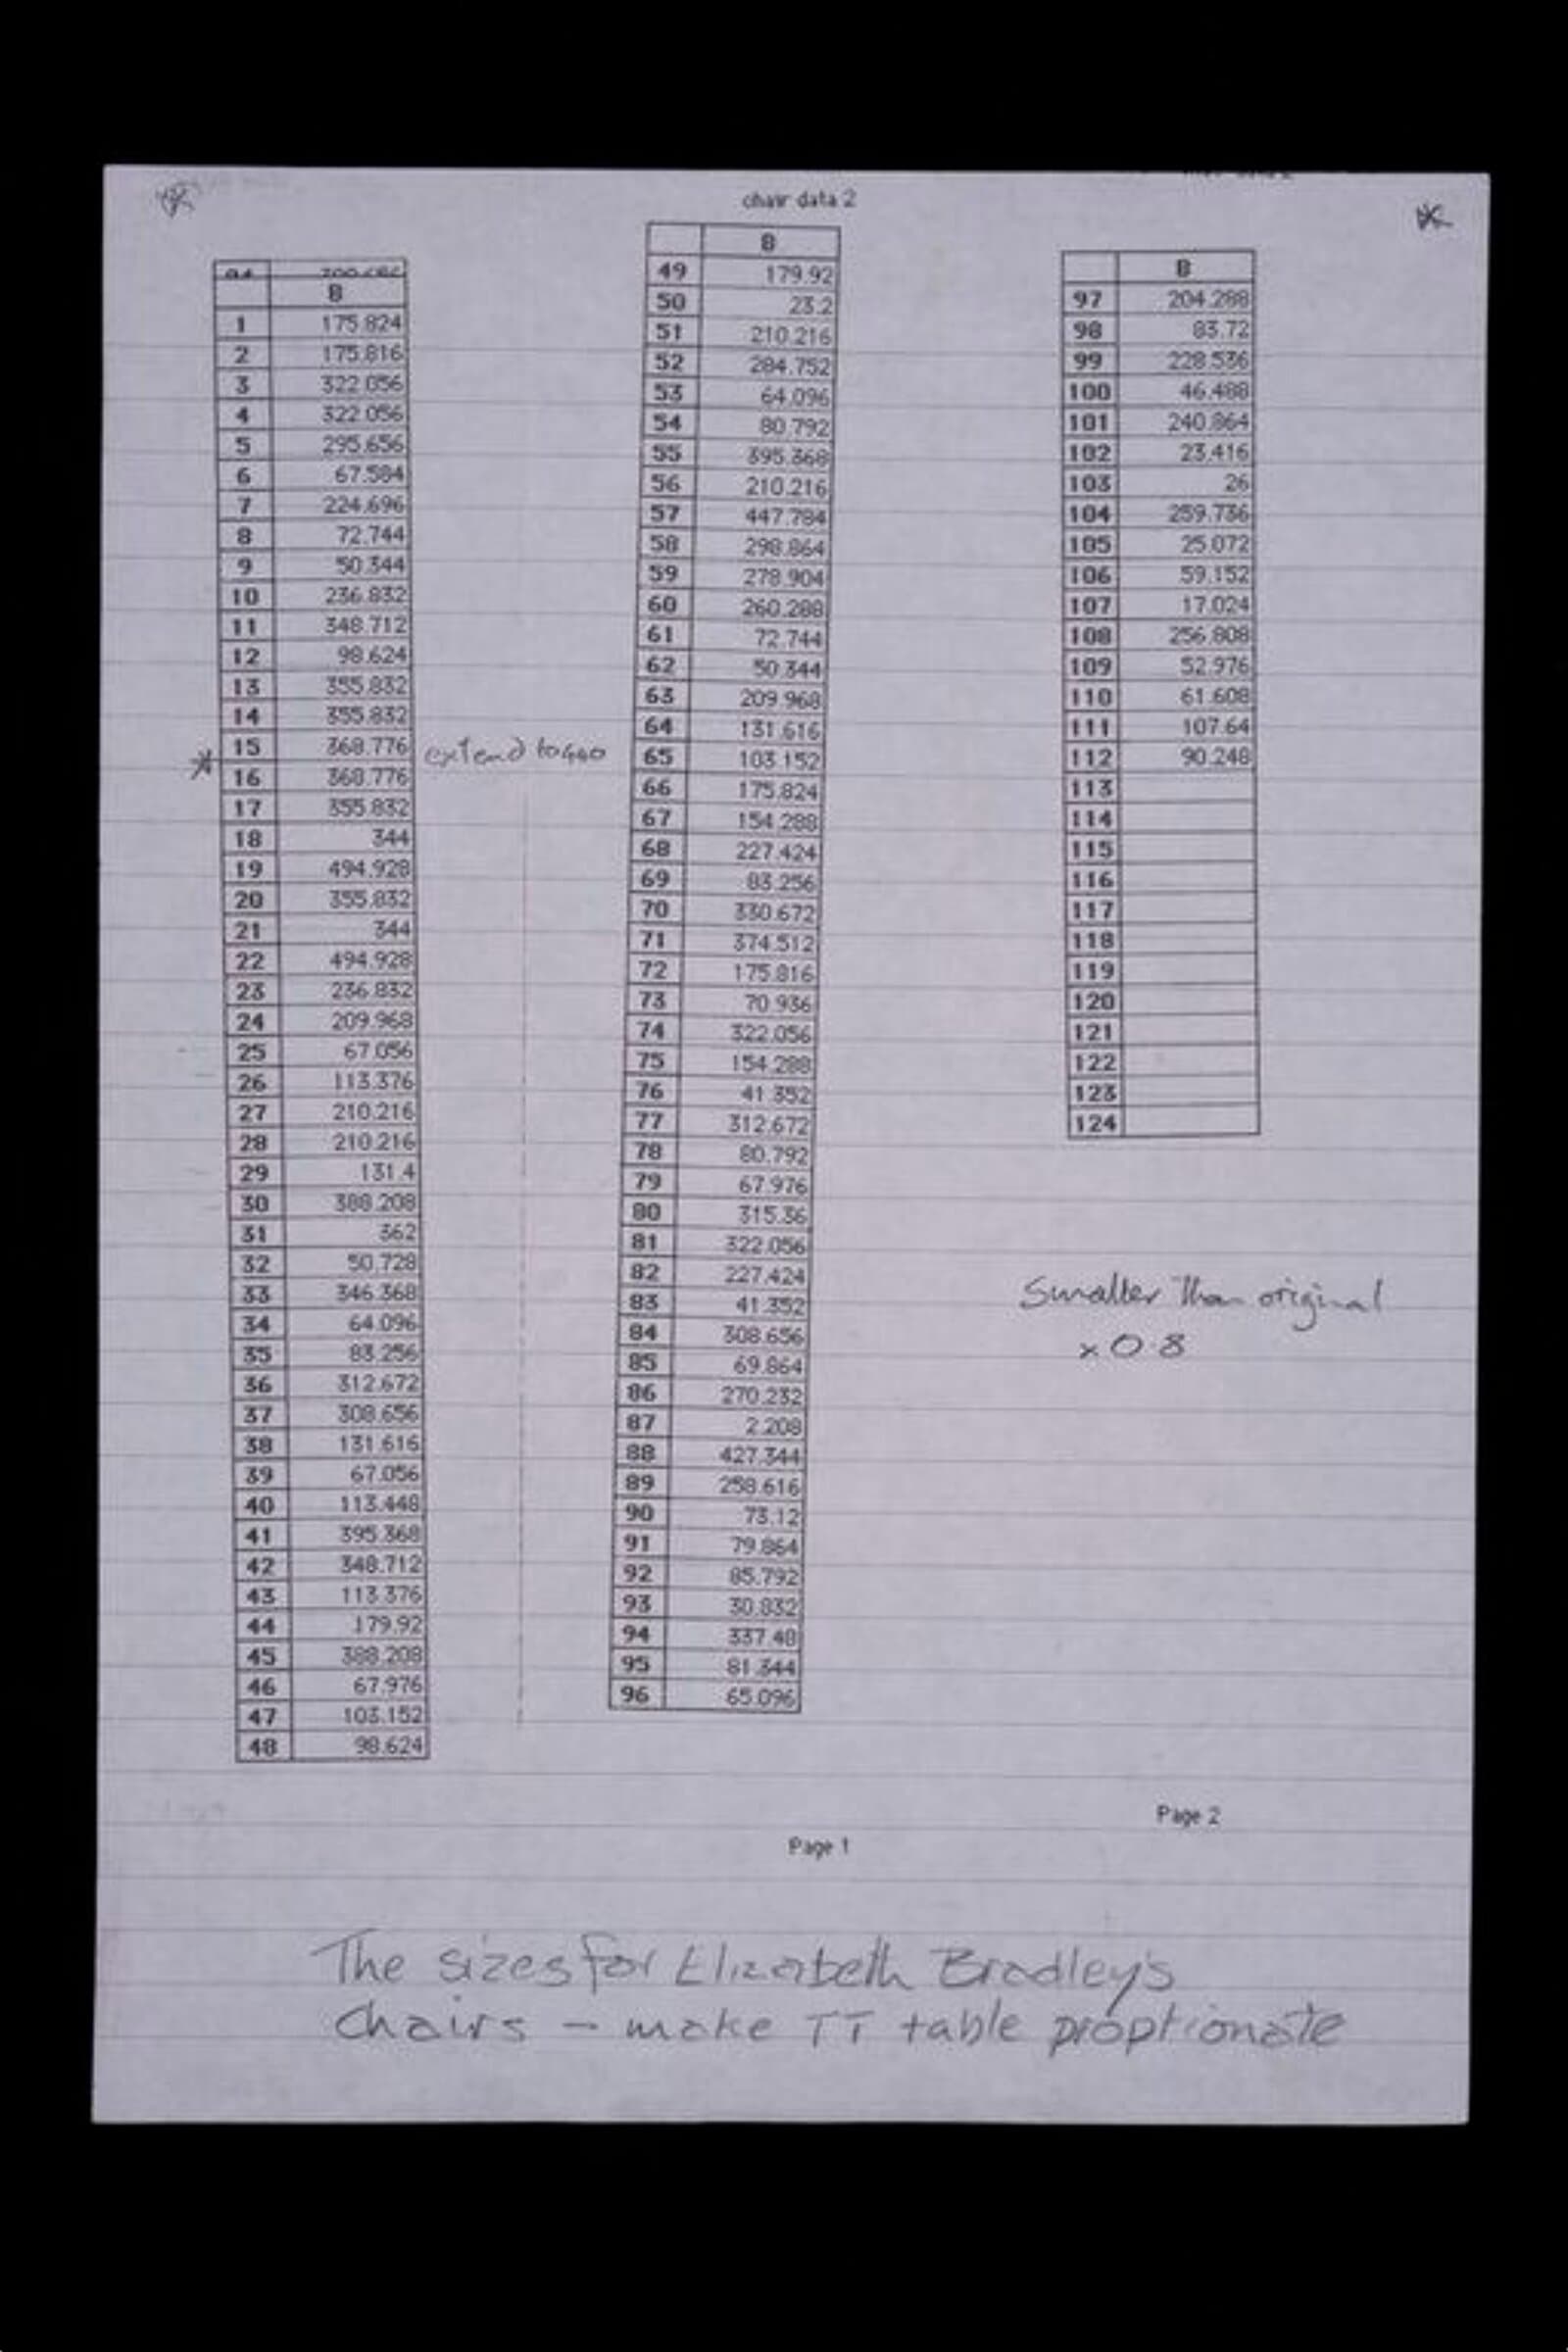 chair data 2
B
1 175.824
2 175.816
3 322.056
4 322.056
5 295.656
6 67.584
7 224.696
8 72.744
9 50.344
10 236.832
11 348.712
12 98.624
13 355.832
14 355.832
15 368.776 extend to 440
16 368.776
17 355.832
18 344
19 494.928
20 355.832
21 344
22 494.928
23 236.832
24 209.968
25 67.056
26 113.376
27 210.216
28 210.216
29 131.4
30 388.208
31 362
32 50.728
33 346.368
34 64.096
35 83.256
36 312.672
37 308.656
38 131.616
39 67.056
40 113.448
41 395.368
42 348.712
43 113.376
44 179.92
45 388.208
46 67.976
47 103.152
48 98.624
B
49 179.92
50 23.2
51 210.216
52 284.752
53 64.096
54 80.792
55 395.368
56 210.216
57 447.784
58 298.864
59 278.904
60 260.288
61 72.744
62 50.344
63 209.968
64 131.616
65 103.152
66 175.824
67 154.288
68 227.424
69 83.256
70 330.672
71 374.512
72 175.816
73 70.936
74 322.056
75 154.288
76 41.352
77 312.672
78 80.792
79 67.976
80 315.36
81 322.056
82 227.424
83 41.352
84 308.656
85 69.864
86 270.232
87 2.208
88 427.344
89 258.616
90 73.12
91 79.864
92 85.792
93 30.832
94 337.48
95 81.344
96 65.096
Page 1
B
97 204.288
98 83.72
99 228.536
100 46.488
101 240.864
102 23.416
103 26
104 259.736
105 25.072
106 59.152
107 17.024
108 256.808
109 52.976
110 61.608
111 107.64
112 90.248
113
114
115
116
117
118
119
120
121
122
123
124
Smaller than original
x 0.8
Page 2
The sizes for Elizabeth Bradley's
chairs – make TT table proptionate